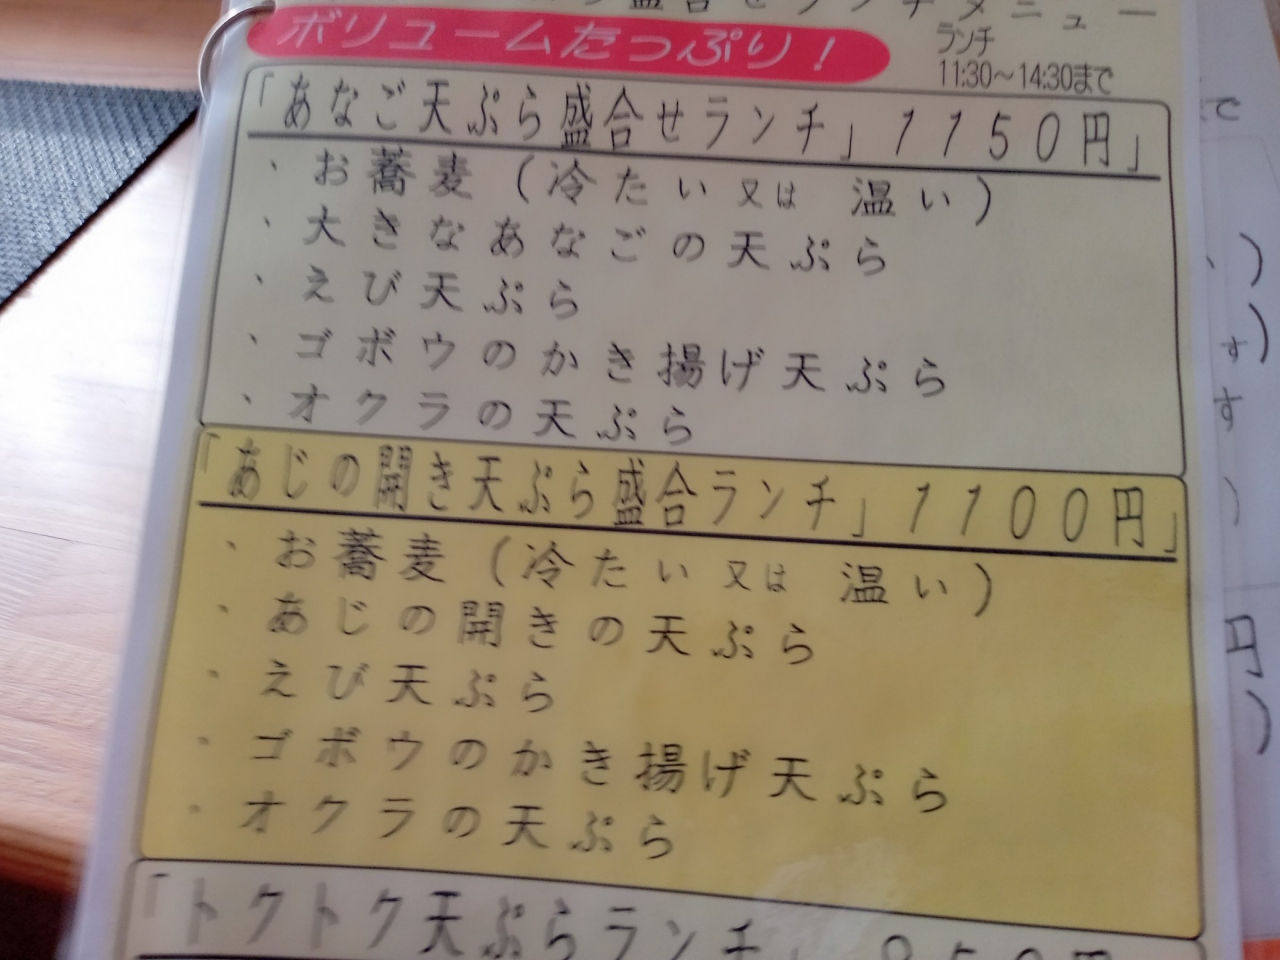 盛合せランチメニュー
ボリュームたっぷり!
ランチ
11:30~14:30まで
「あなご天ぷら盛合せランチ」1150円」
・お蕎麦(冷たい又は 温い)
・大きなあなごの天ぷら
・えび天ぷら
・ゴボウのかき揚げ天ぷら
・オクラの天ぷら
「あじの開き天ぷら盛合ランチ」1100円」
・お蕎麦(冷たい又は 温い)
・あじの開きの天ぷら
・えび天ぷら
・ゴボウのかき揚げ天ぷら
・オクラの天ぷら
「トクトク天ぷらランチ」